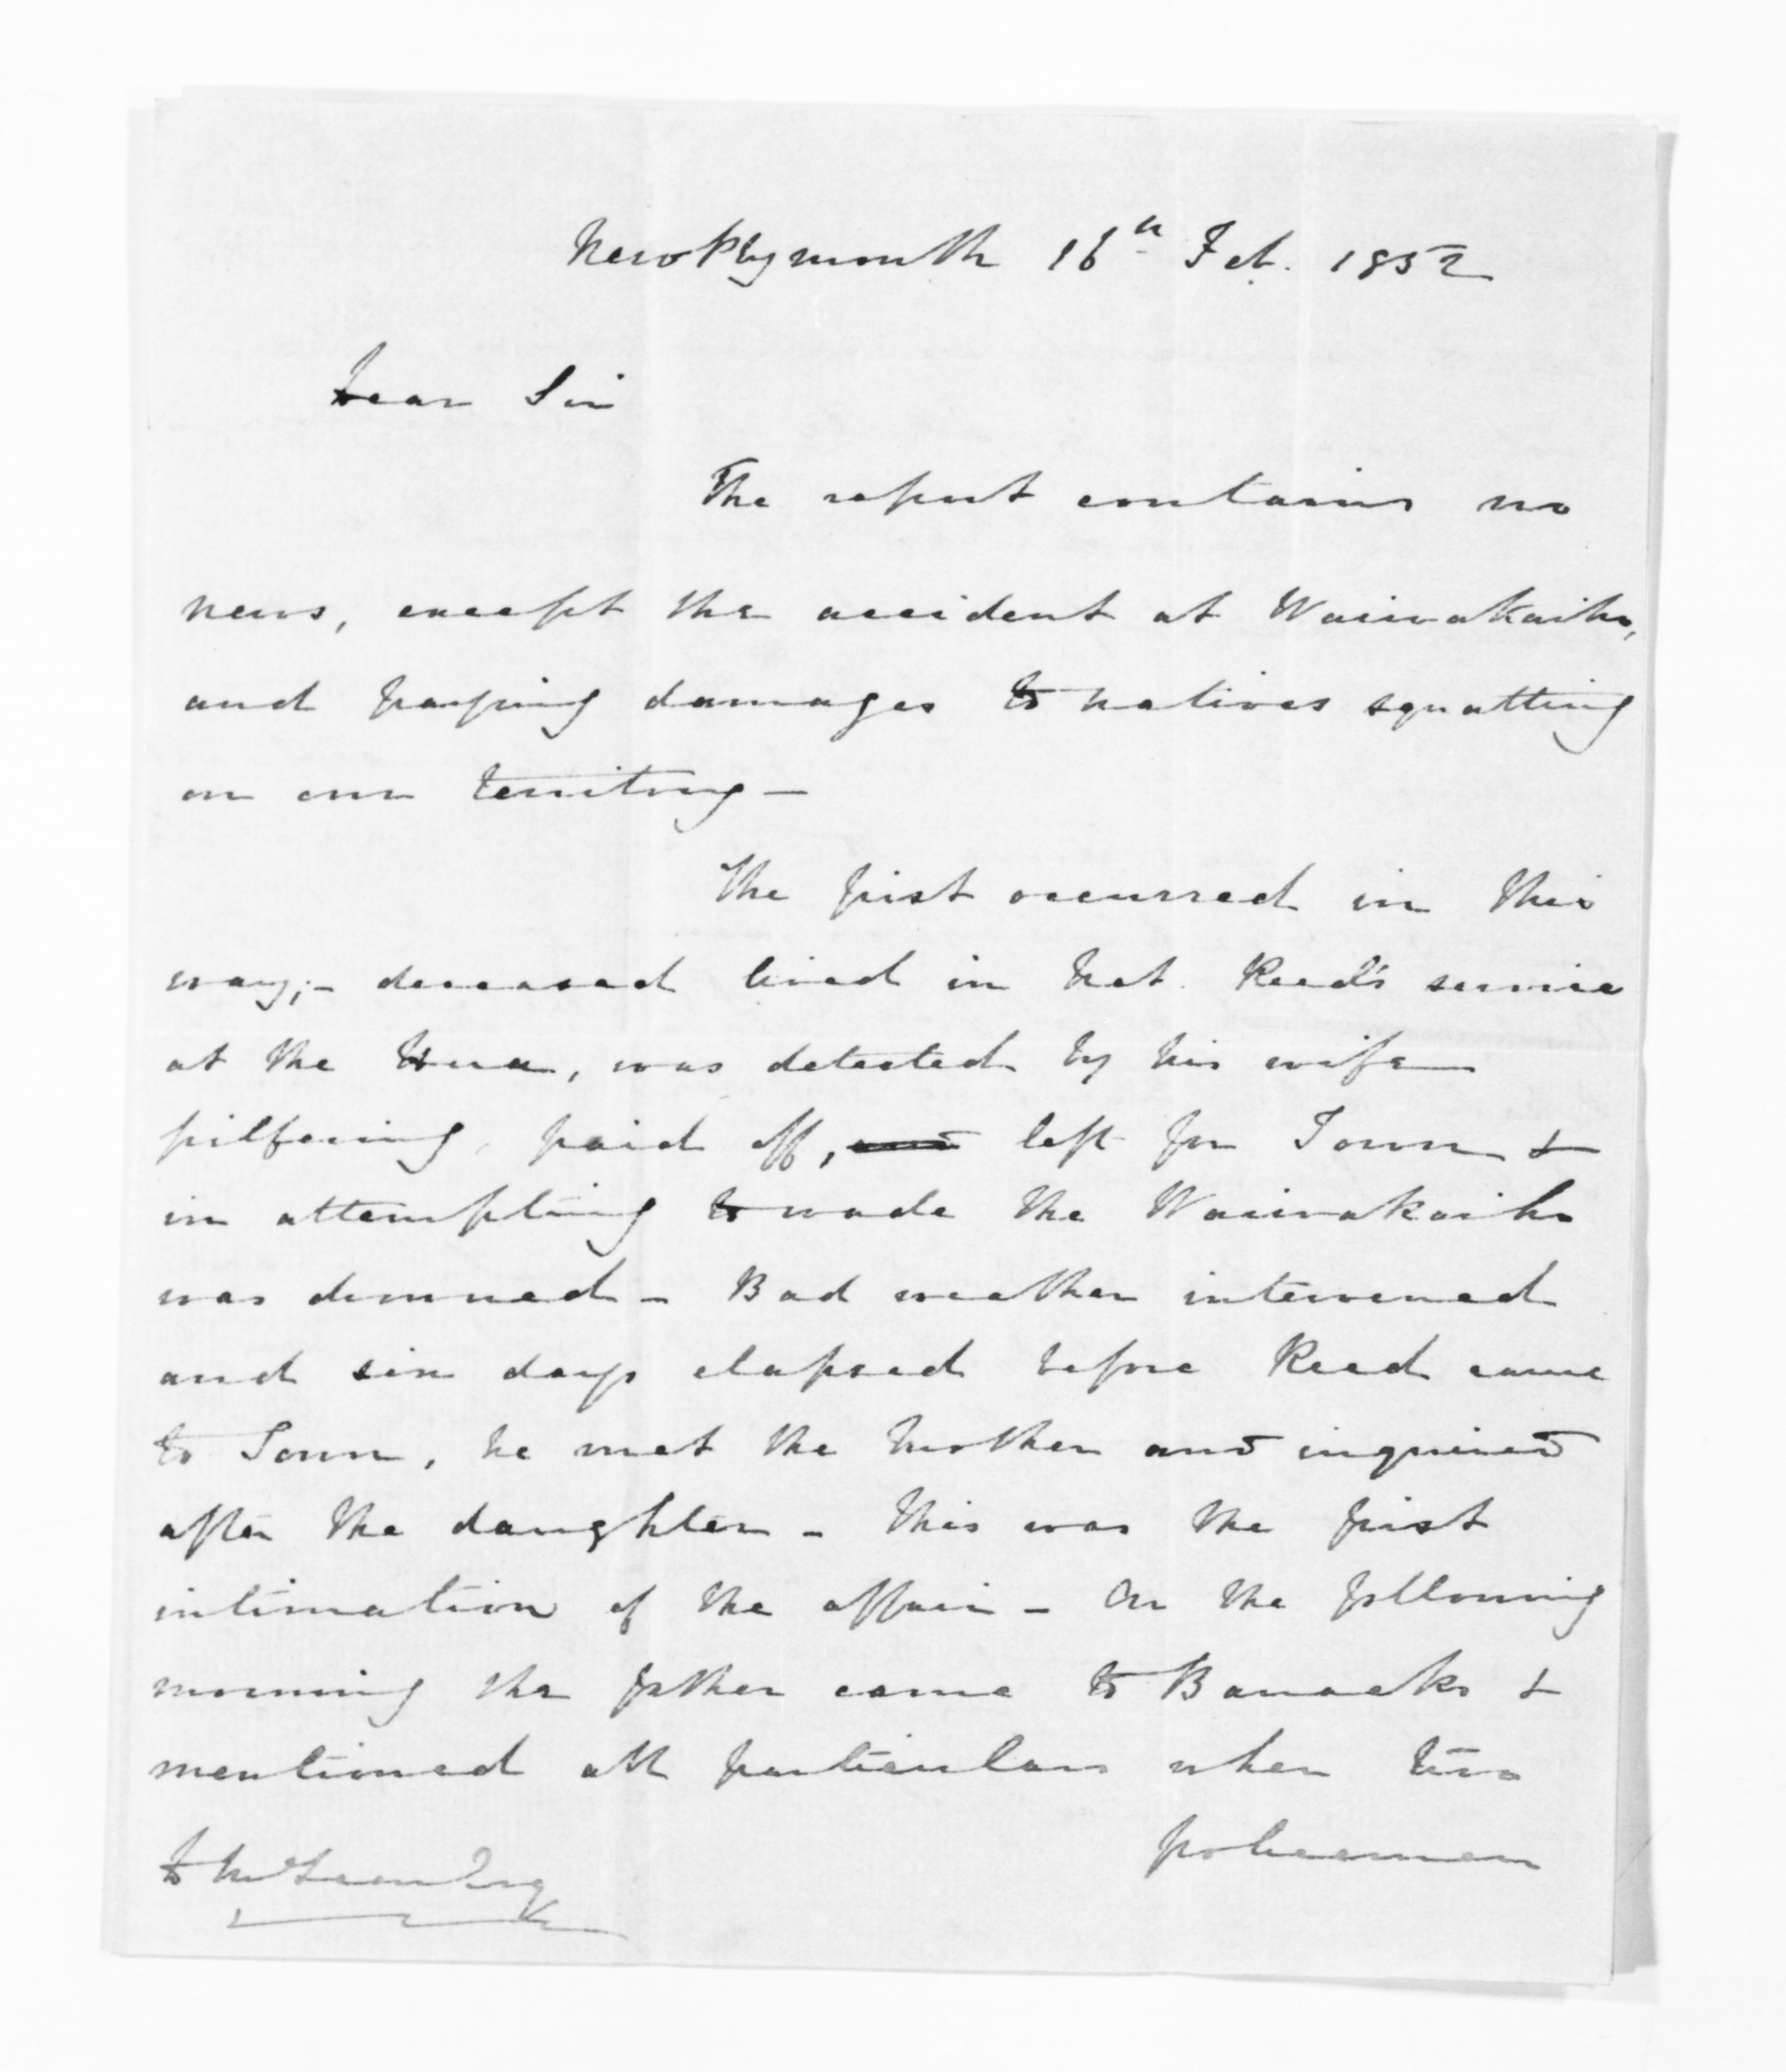 New Plymouth 16th Feb. 1852
Dear Sir
The report contains no
news, except the accident at Waiwakaiho,
and paying damages to natives squatting
on our territory –
The first occurred in this
way;– deceased lived in Nat. Reed's service
at the Hua, was detected by his wife
pilfering, paid off, left for Town &
in attempting to wade the Waiwakaiho
was drowned – Bad weather intervened
and six days elapsed before Reed came
to Town, he met the Mother and inquired
after the daughter – This was the first
intimation of the affair – On the following
morning the father came to Barracks &
mentioned all particulars when two
policemen
D McLean Esq